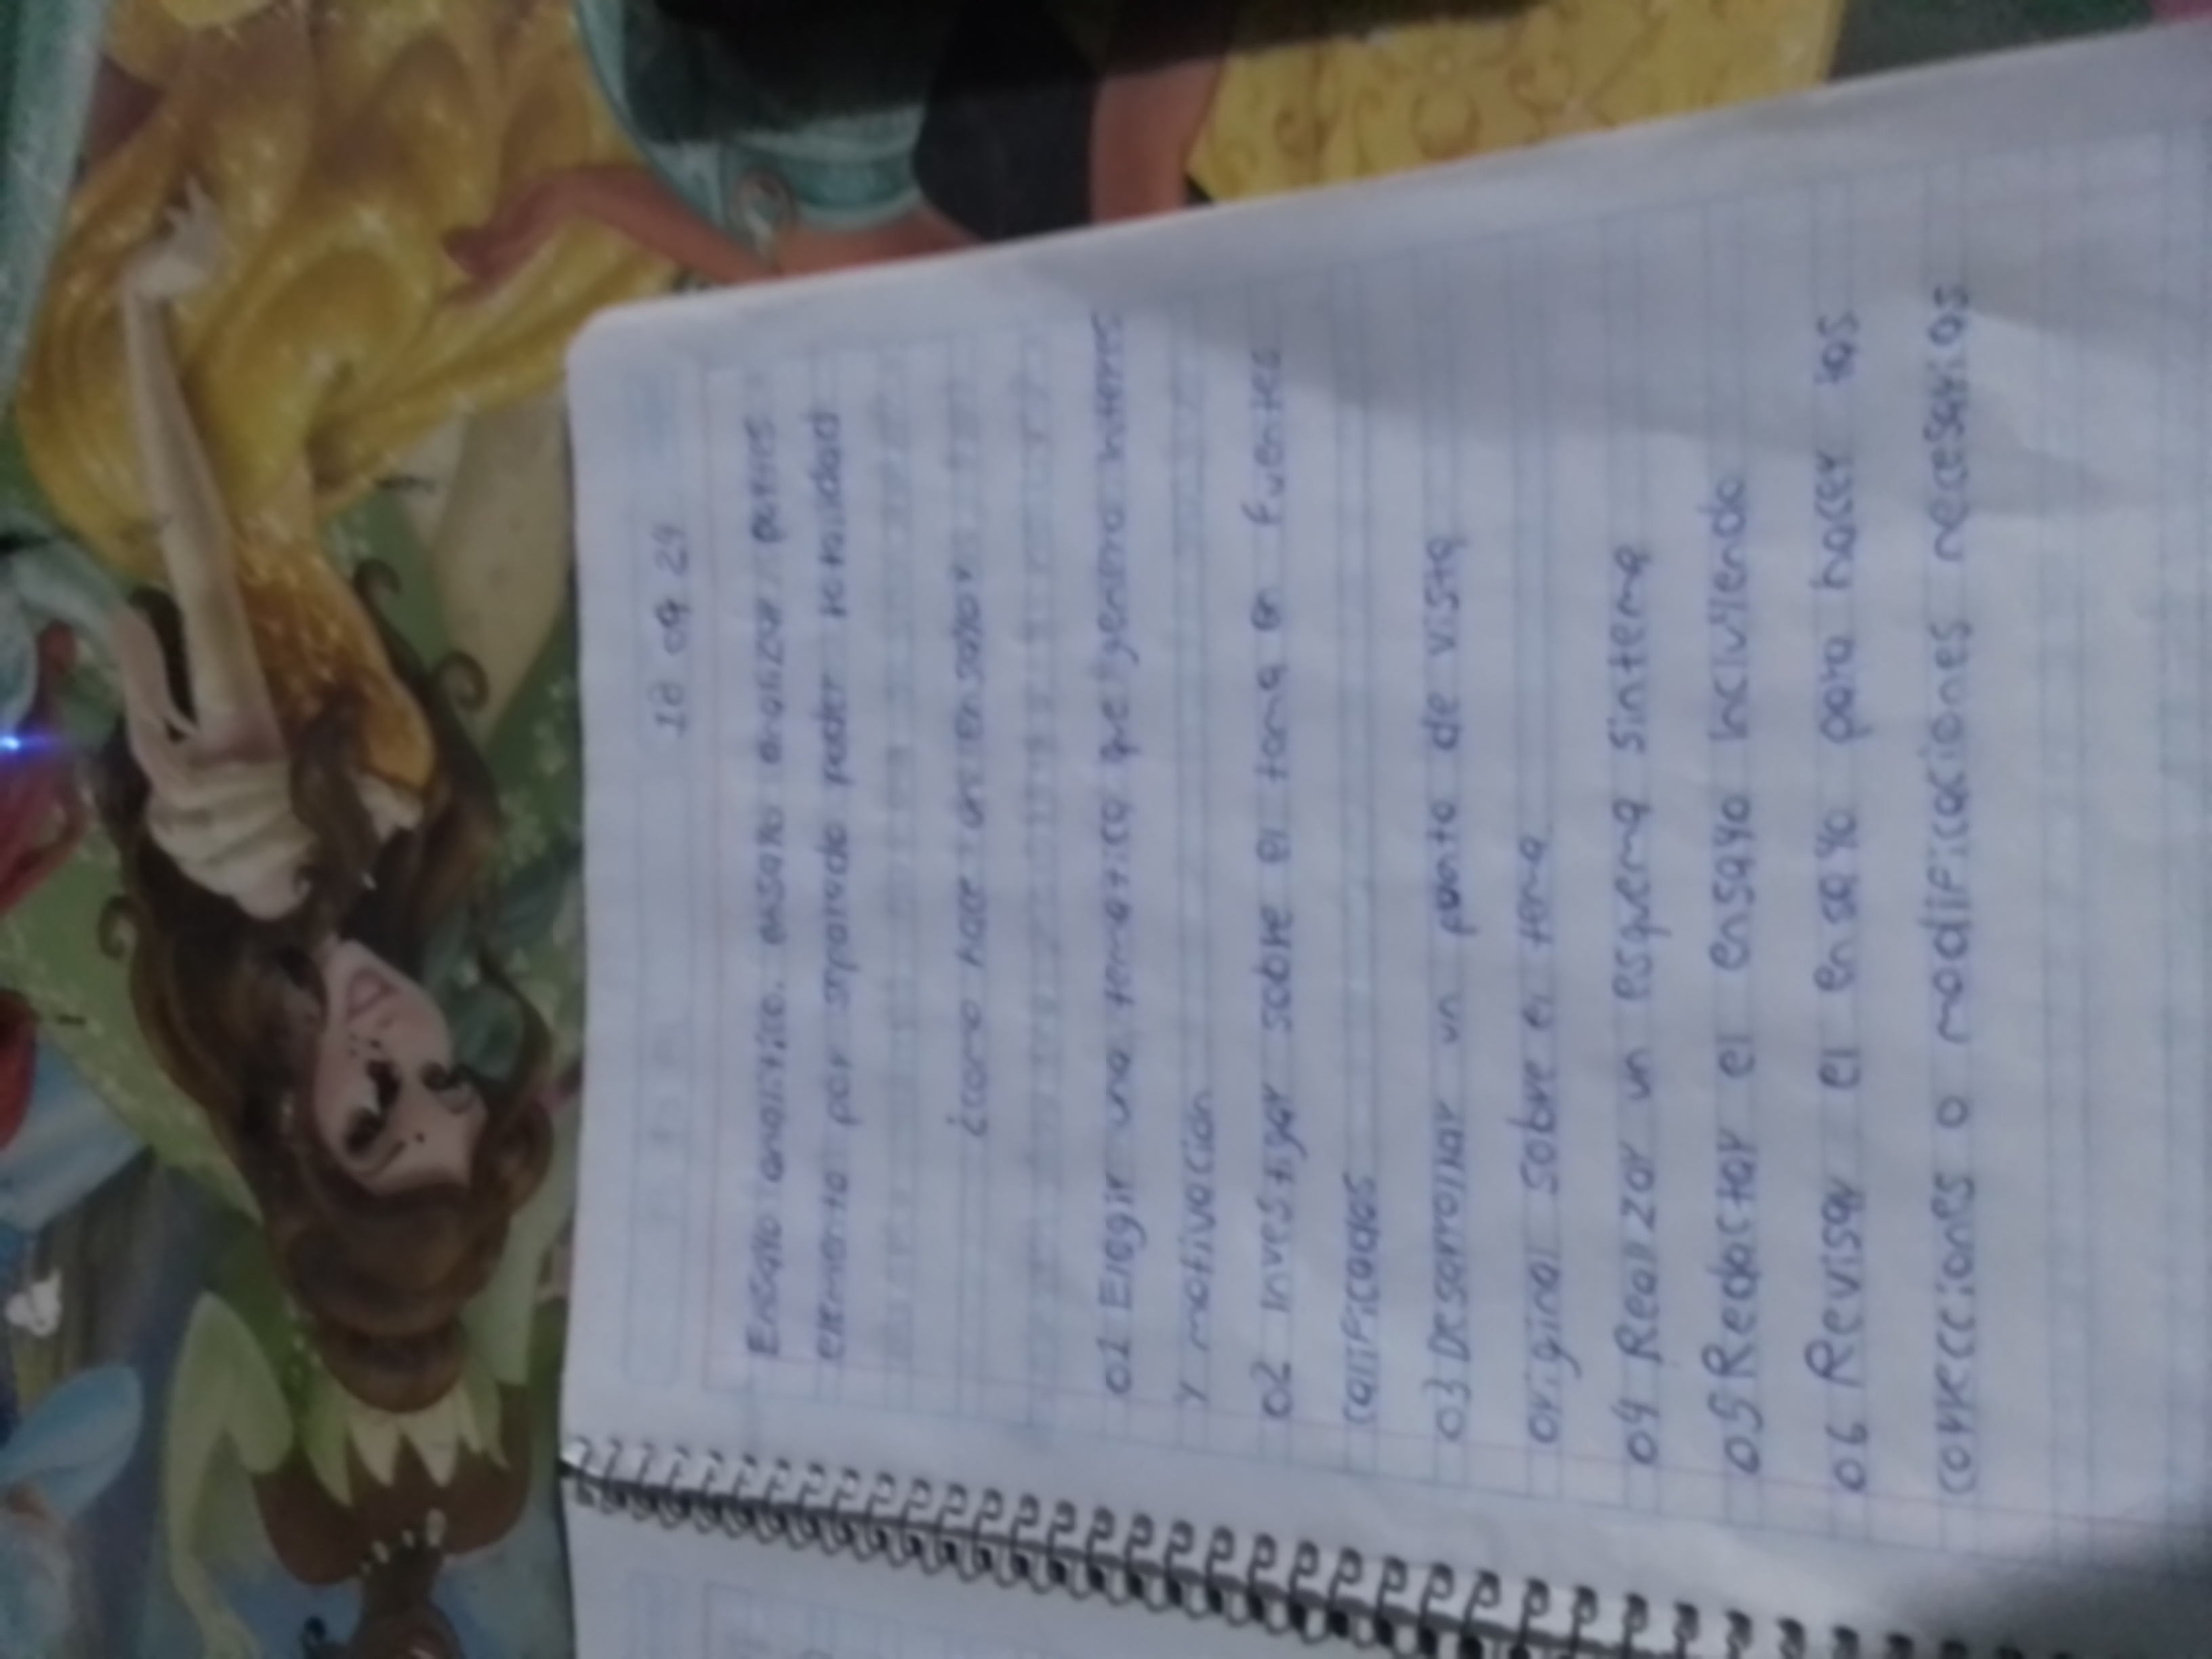 18 09 24
Ensayo analítico. ensayo analizar partes
elemento por separado poder totalidad
¿como hacer un ensayo?
01 Elegir una tematica que genera interes
y motivación
02 investigar sobre el tema en fuentes
calificadas
03 Desarrollar un punto de vista
original sobre el tema
04 Realizar un esquema sintema
05 Redactar el ensayo incluyendo
06 Revisar el ensayo para hacer las
correcciones o modificaciones necesarias